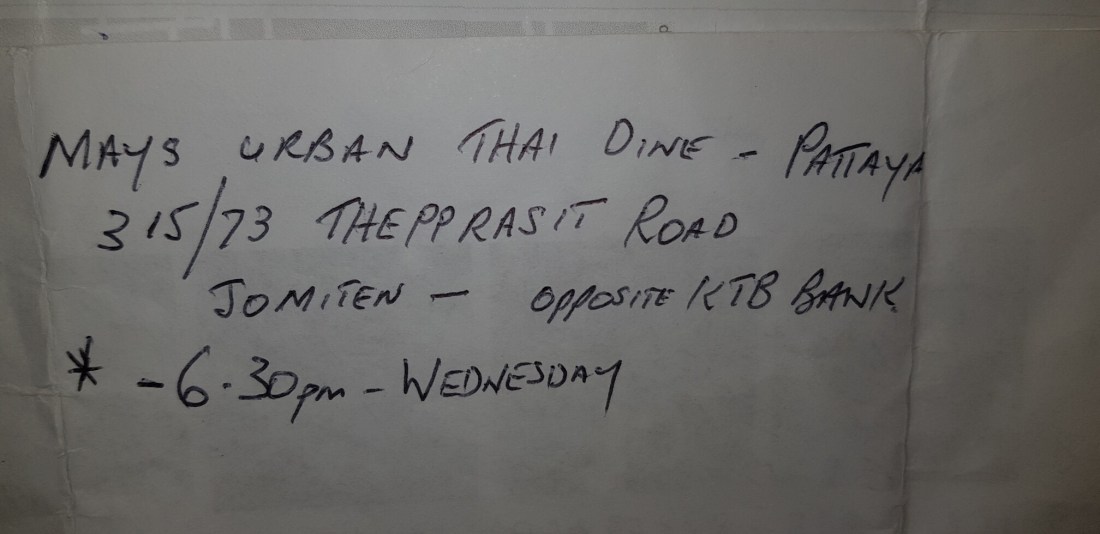 MAYS URBAN THAI DINE - PATTAYA
315/73 THEPPRASIT ROAD
JOMITEN - OPPOSITE KTB BANK
* - 6.30pm - WEDNESDAY